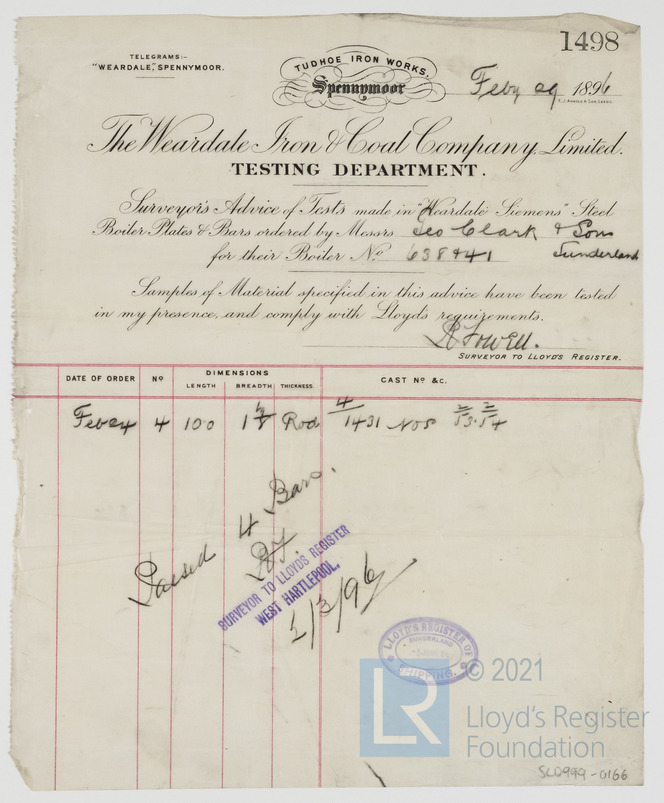 1498
TELEGRAMS:-
"WEARDALE", SPENNYMOOR.
TUDHOE IRON WORKS,
Spennymoor
Feby 29 1896
The Weardale Iron & Coal Company, Limited.
TESTING DEPARTMENT.
Surveyor's Advice of Tests made in "Weardale Siemens" Steel
Boiler Plates & Bars ordered by Messrs Geo Clark & Sons
for their Boiler No 638 & 41 Sunderland
Samples of Material specified in this advice have been tested
in my presence, and comply with Lloyd's requirements.
R Fowell.
SURVEYOR TO LLOYD'S REGISTER.
DATE OF ORDER No DIMENSIONS CAST No &c.
LENGTH BREADTH THICKNESS
Feb 24 4 10·0 Rod 4 1431 Nos 53·54
Passed 4 Bars.
R.F.
SURVEYOR TO LLOYDS REGISTER
WEST HARTLEPOOL.
2/3/96
LLOYD'S REGISTER OF
SUNDERLAND
SHIPPING.
LR
© 2021
Lloyd's Register
Foundation
SLD999-0166